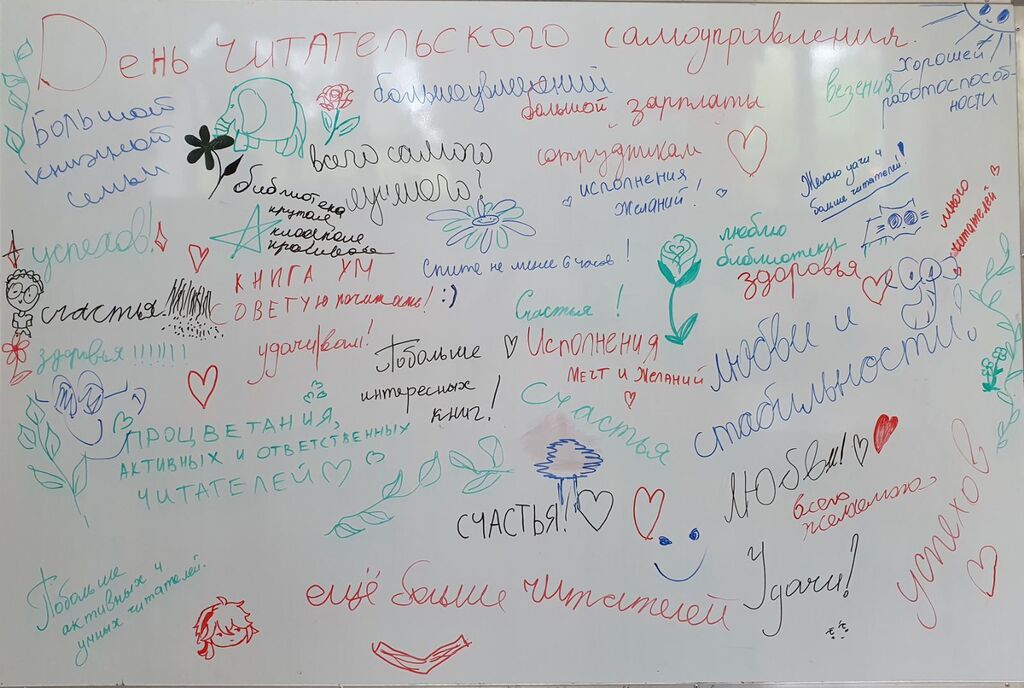 День читательского самоуправления
Большой
книжной
семьи
большой зарплаты
сотрудникам
везения
хорошей
работоспособ-
ности
всего самого
лучшего!
исполнения
желаний!
Желаю удачи и
больше читателей!
много
читателей
библиотека
крутая
классная
красивая
успехов!
люблю
библиотеку
Спите не менее 6 часов!
здоровья
КНИГА УМ
СОВЕТУЮ почитать! :)
счастья
Счастья!
удачи вам!
здоровья !!!!!!!
Побольше
интересных
книг!
Исполнения
мечт и желаний
любви и
стабильности!
Счастья
ПРОЦВЕТАНИЯ,
АКТИВНЫХ И ОТВЕТСТВЕННЫХ
ЧИТАТЕЛЕЙ
любви!
всего
желаемого
СЧАСТЬЯ!
успехов
Удачи!
Побольше
активных и
умных читателей.
ещё больше читателей